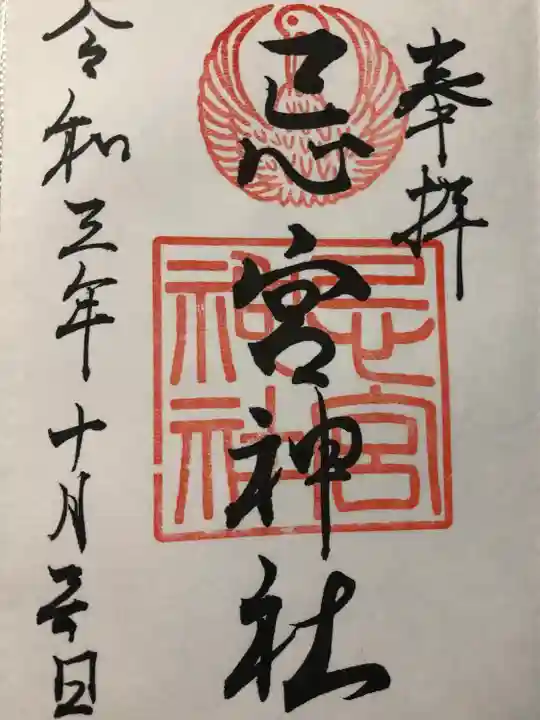 奉拝
忌宮神社
忌宮
神社
令和三年十月 日